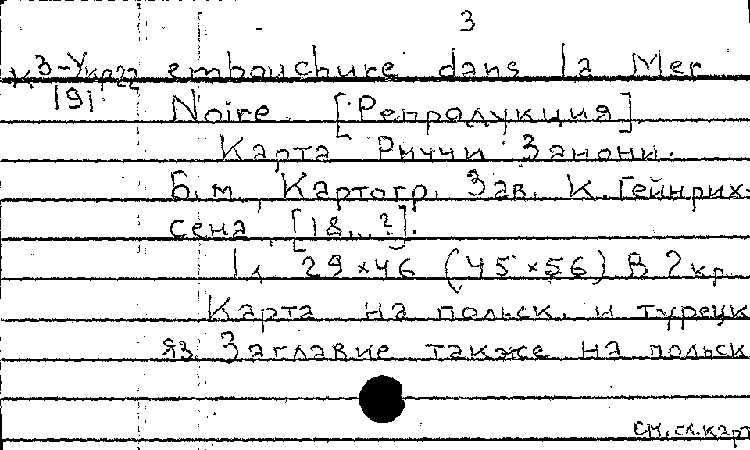 3
К 3-Укр22 embouchure dans la Mer
191 Noire. [Репродукция]
Карта Риччи Занони.
Б.м., Картогр. Зав. К. Гейнрих-
сена, [18...?].
1 л. 29×46 (45×56) В 2 кр.
Карта на польск. и турецк
яз. Заглавие также на польск
см. гл. карт